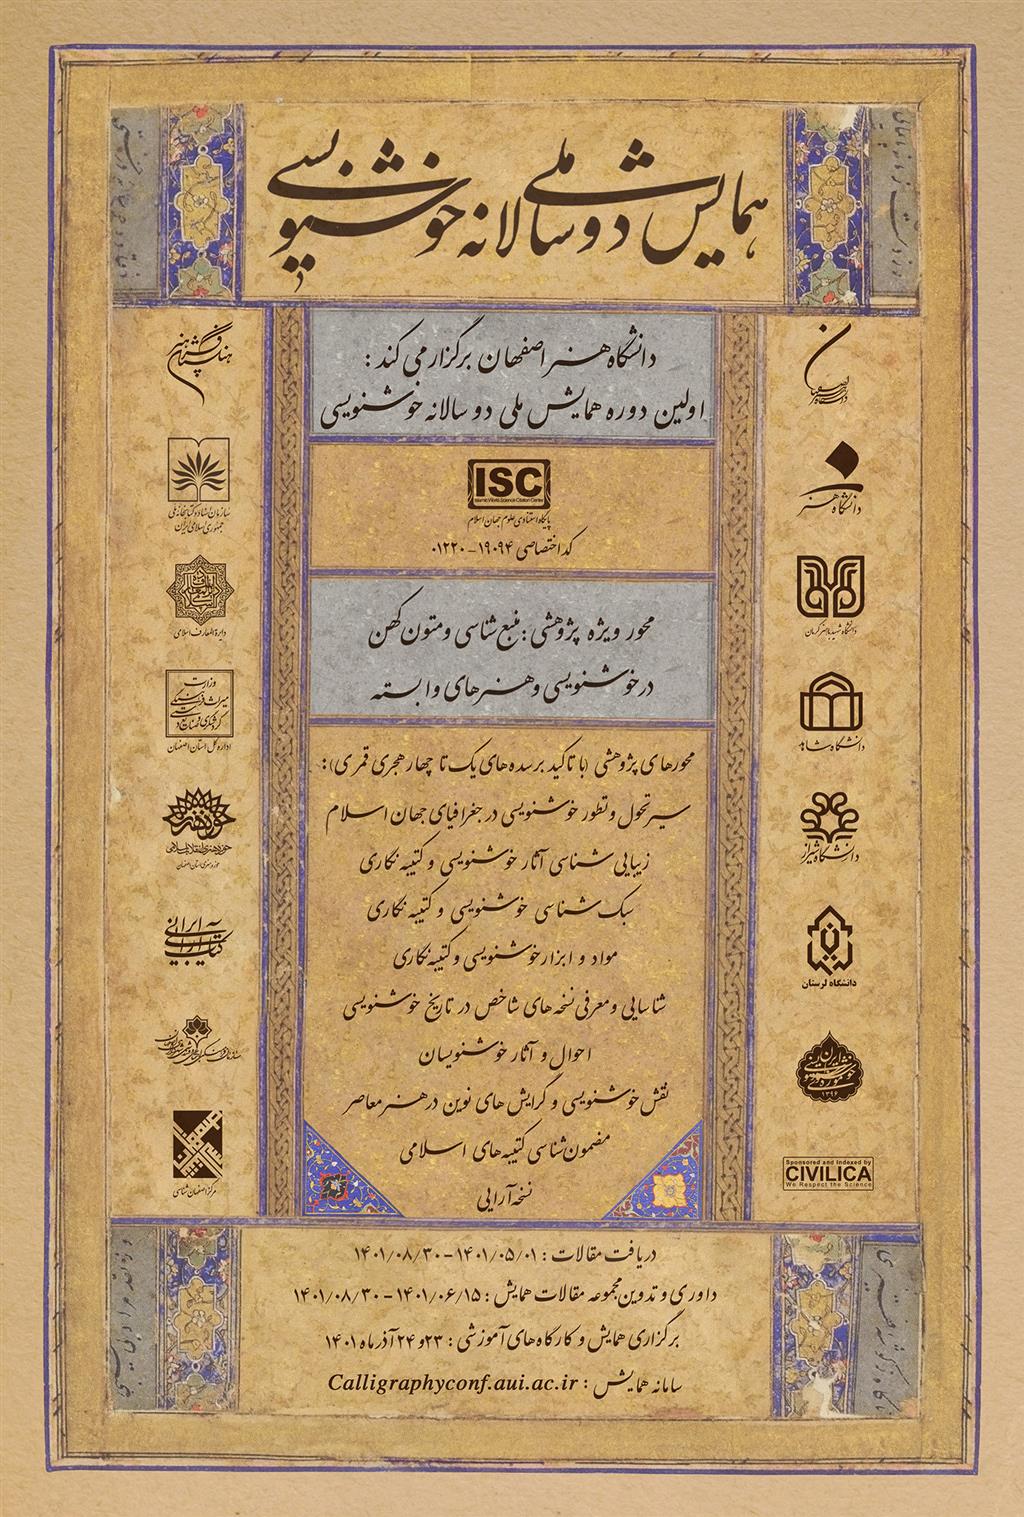 همایش ملی دوسالانه خوشنویسی
دانشگاه هنر اصفهان برگزار می کند :
اولین دوره همایش ملی دو سالانه خوشنویسی
ISC
Islamic World Science Citation Center
پایگاه استنادی علوم جهان اسلام
کد اختصاصی ۱۹۰۹۴-۰۱۲۲۰
محور ویژه پژوهشی : منبع شناسی و متون کهن
در خوشنویسی و هنرهای وابسته
محورهای پژوهشی (با تاکید بر سده های یک تا چهار هجری قمری):
سیر تحول و تطور خوشنویسی در جغرافیای جهان اسلام
زیبایی شناسی آثار خوشنویسی و کتیبه نگاری
سبک شناسی خوشنویسی و کتیبه نگاری
مواد و ابزار خوشنویسی و کتیبه نگاری
شناسایی و معرفی نسخه های شاخص در تاریخ خوشنویسی
احوال و آثار خوشنویسان
نقش خوشنویسی و گرایش های نوین در هنر معاصر
مضمون شناسی کتیبه های اسلامی
نسخه آرایی
دانشگاه هنر اصفهان
دانشگاه هنر
دانشگاه شهید باهنر کرمان
دانشگاه شاهد
دانشگاه شیراز
دانشگاه لرستان
Sponsored and Indexed by
CIVILICA
We Respect the Science
فرهنگستان هنر
سازمان اسناد و کتابخانه ملی
جمهوری اسلامی ایران
دایرة المعارف اسلامی
وزارت
میراث فرهنگی
گردشگری و صنایع دستی
اداره کل استان اصفهان
حوزه هنری
حوزه هنری انقلاب اسلامی
حوزه هنری استان اصفهان
کتاب آرایی ایرانی
مرکز اصفهان شناسی
دریافت مقالات : ۱۴۰۱/۰۵/۰۱ - ۱۴۰۱/۰۸/۳۰
داوری و تدوین مجموعه مقالات همایش : ۱۴۰۱/۰۶/۱۵ - ۱۴۰۱/۰۸/۳۰
برگزاری همایش و کارگاه های آموزشی : ۲۳ و ۲۴ آذر ماه ۱۴۰۱
سامانه همایش : Calligraphyconf.aui.ac.ir